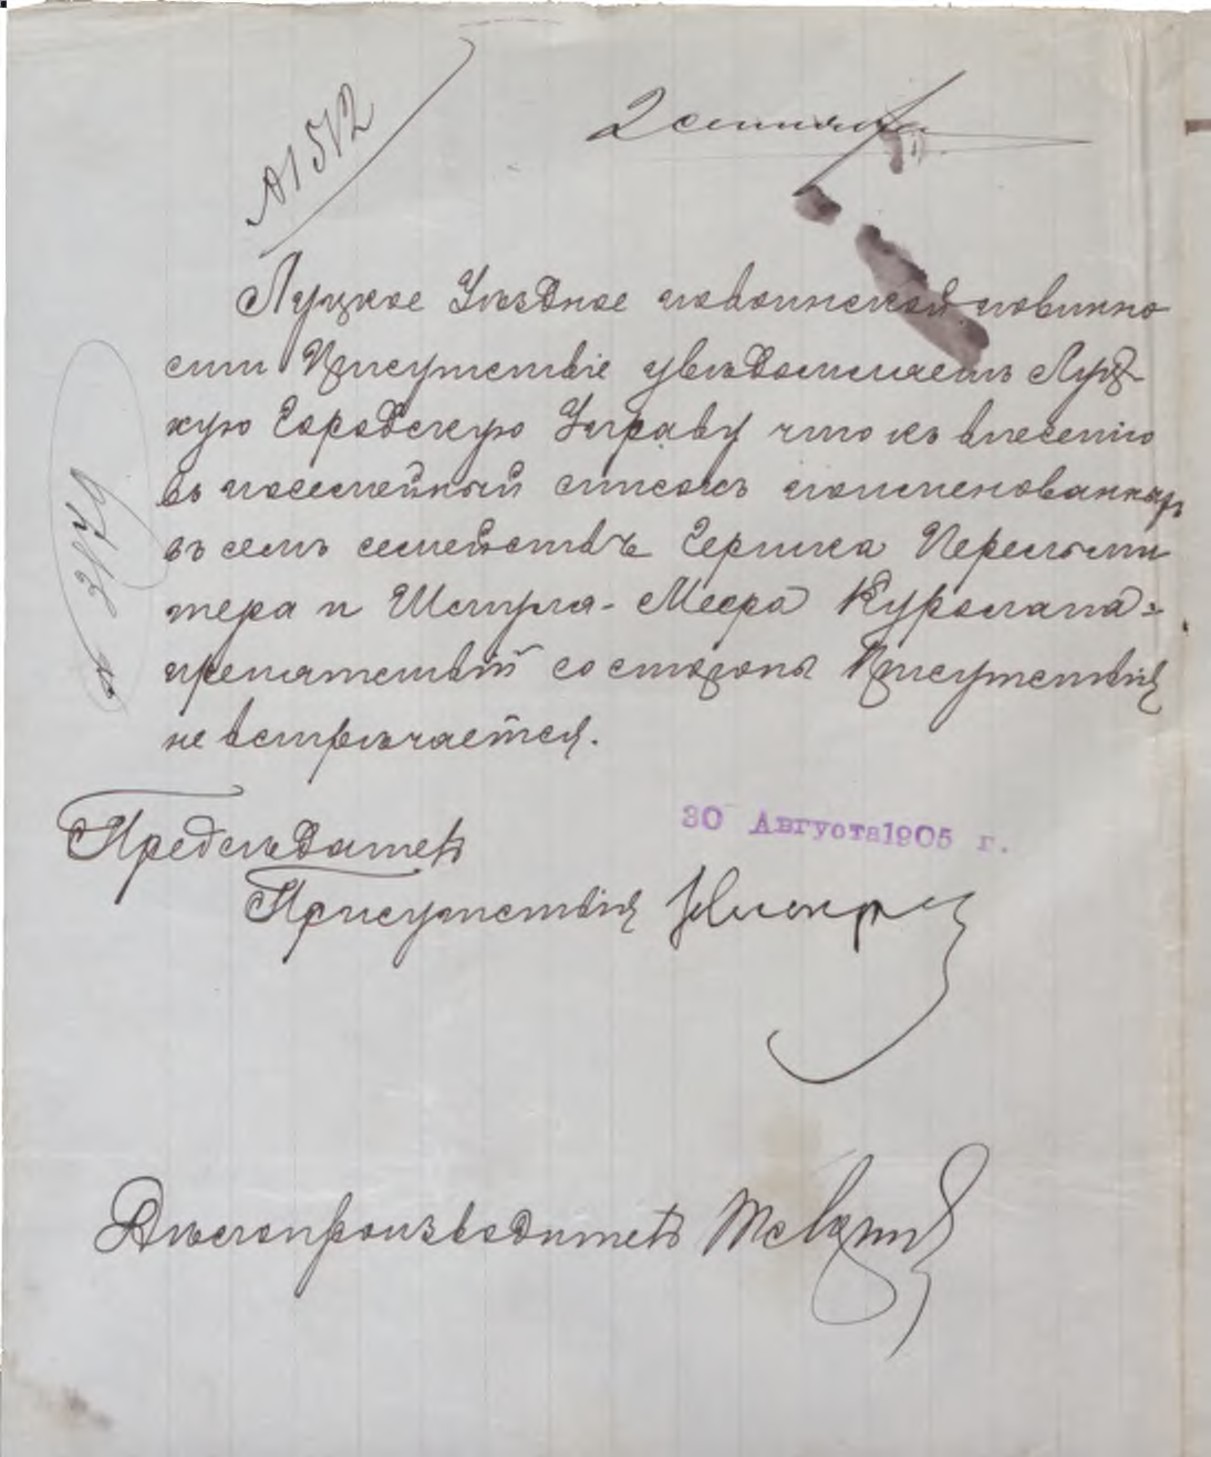 № 1512
2 сентября
Луцкое Уѣздное по воинской повинно
сти Присутствіе увѣдомляетъ Луц-
кую Городскую Управу что къ внесенію
въ посемейный списокъ поименованныхъ
въ семъ семействъ Гершка Перельми
тера и Шмуля-Меера Куролапа=
препятствій со стороны Присутствія
не встрѣчается.
№ 3179
30 Августа 1905 г.
Предсѣдатель
Присутствія
Дѣлопроизводитель